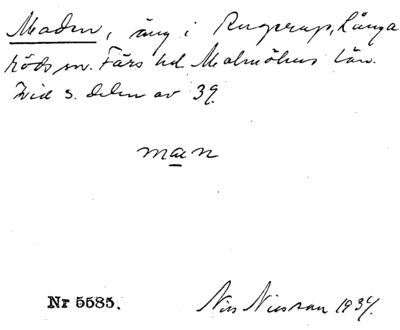 Maden, äng i Rugerup, Långa
röds sn. Färs hd. Malmöhus län.
Vid s. delen av 39.
man
Nr 5585.
Nils Nilsson 1934.